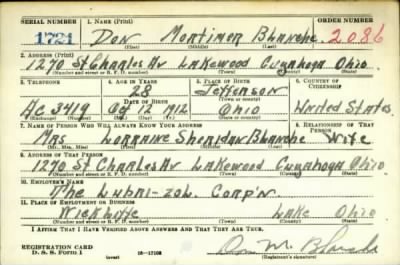 SERIAL NUMBER 1. NAME (Print) ORDER NUMBER
1721 Don Mortimer Blanche 2086
(First) (Middle) (Last)
2. ADDRESS (Print)
1270 St Charles Av Lakewood Cuyahoga Ohio
(Number and street or R. F. D. number) (Town) (County) (State)
3. TELEPHONE 4. AGE IN YEARS 5. PLACE OF BIRTH 6. COUNTRY OF CITIZENSHIP
28 Jefferson
DATE OF BIRTH (Town or county)
Ac 3419 Oct 12 1912 Ohio United States
(Exchange) (Number) (Mo.) (Day) (Yr.) (State or country)
7. NAME OF PERSON WHO WILL ALWAYS KNOW YOUR ADDRESS 8. RELATIONSHIP OF THAT PERSON
Mrs Lorraine Sheridan Blanche Wife
(Mr., Mrs., Miss) (First) (Middle) (Last)
9. ADDRESS OF THAT PERSON
1270 St Charles Av Lakewood Cuyahoga Ohio
(Number and street or R. F. D. number) (Town) (County) (State)
10. EMPLOYER'S NAME
The Lubri-zol. Corp'n.
11. PLACE OF EMPLOYMENT OR BUSINESS
Wickliffe Lake Ohio
(Number and street or R. F. D. number) (Town) (County) (State)
I AFFIRM THAT I HAVE VERIFIED ABOVE ANSWERS AND THAT THEY ARE TRUE.
REGISTRATION CARD
D. S. S. FORM 1 (over) Don M. Blanche
(Registrant's signature)